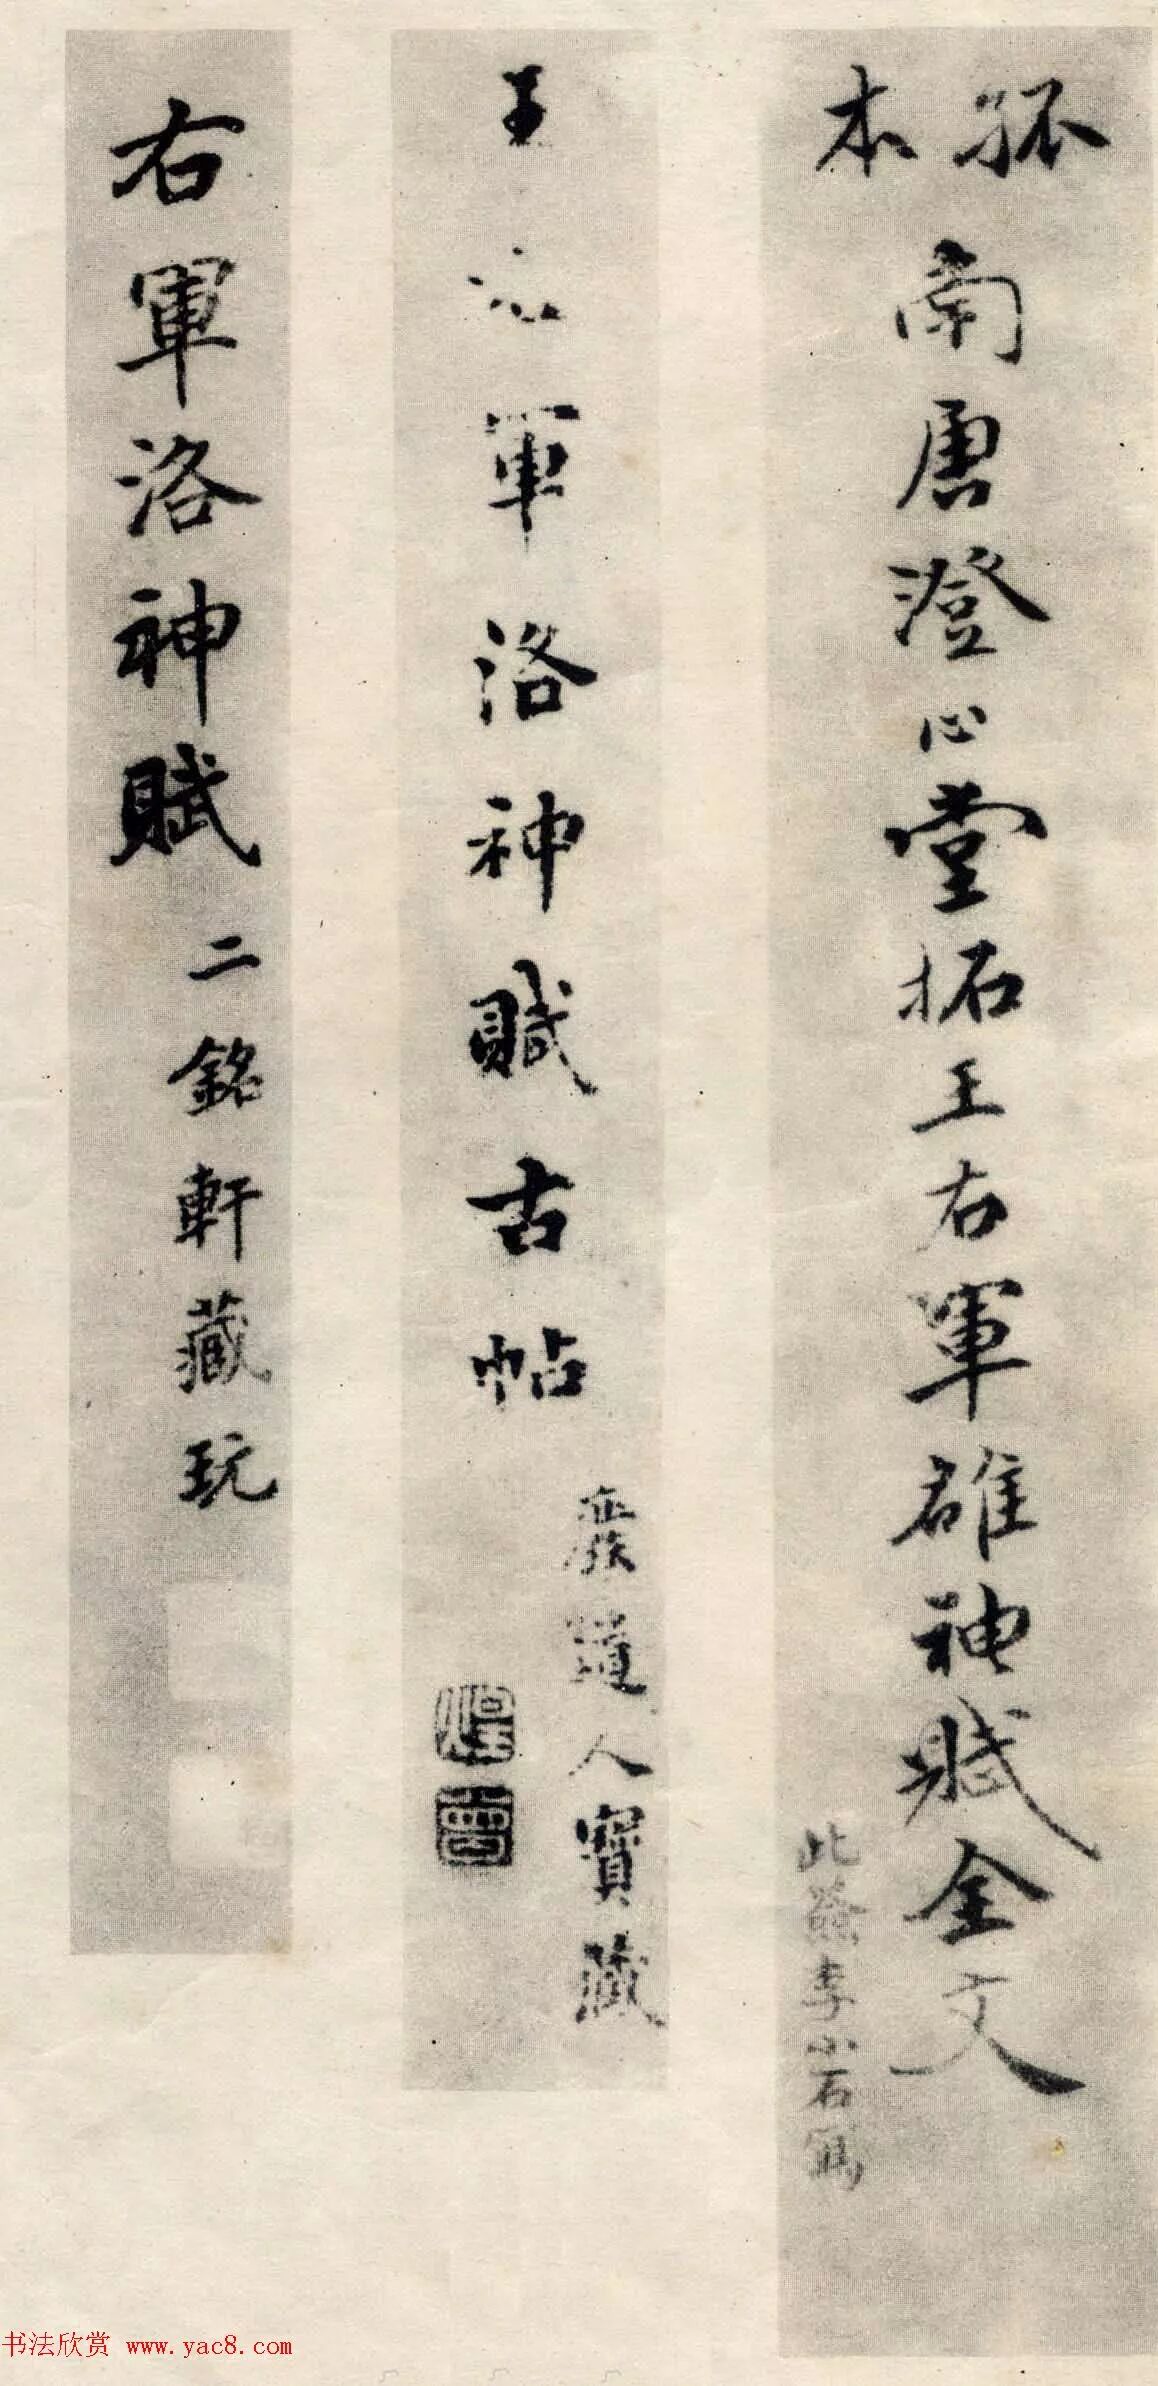 孤本
南唐澄心堂拓王右軍雒神賦全文
此籤李小石寫
王右軍洛神賦古帖
廢道人寶藏
右軍洛神賦
二銘軒藏玩
书法欣赏 www.yac8.com